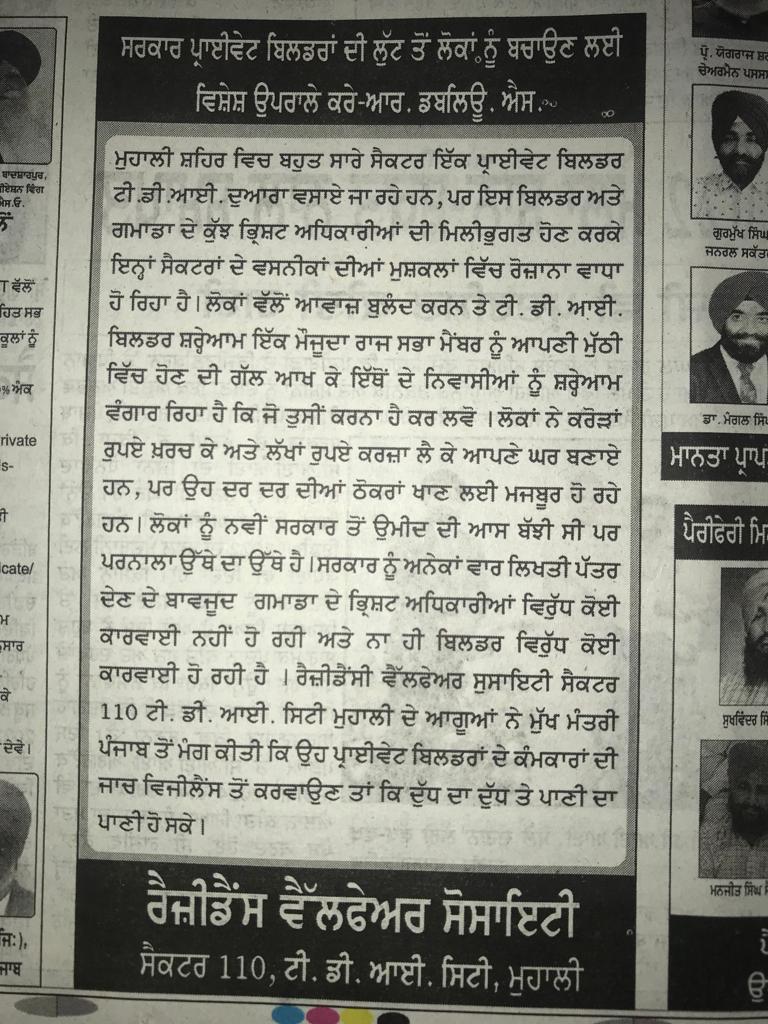 ਸਰਕਾਰ ਪ੍ਰਾਈਵੇਟ ਬਿਲਡਰਾਂ ਦੀ ਲੁੱਟ ਤੋਂ ਲੋਕਾਂ ਨੂੰ ਬਚਾਉਣ ਲਈ
ਵਿਸ਼ੇਸ਼ ਉਪਰਾਲੇ ਕਰੇ-ਆਰ. ਡਬਲਿਊ. ਐਸ.
ਮੁਹਾਲੀ ਸ਼ਹਿਰ ਵਿਚ ਬਹੁਤ ਸਾਰੇ ਸੈਕਟਰ ਇੱਕ ਪ੍ਰਾਈਵੇਟ ਬਿਲਡਰ
ਟੀ.ਡੀ.ਆਈ. ਦੁਆਰਾ ਵਸਾਏ ਜਾ ਰਹੇ ਹਨ, ਪਰ ਇਸ ਬਿਲਡਰ ਅਤੇ
ਗਮਾਡਾ ਦੇ ਕੁੱਝ ਭ੍ਰਿਸ਼ਟ ਅਧਿਕਾਰੀਆਂ ਦੀ ਮਿਲੀਭੁਗਤ ਹੋਣ ਕਰਕੇ
ਇਨ੍ਹਾਂ ਸੈਕਟਰਾਂ ਦੇ ਵਸਨੀਕਾਂ ਦੀਆਂ ਮੁਸ਼ਕਲਾਂ ਵਿੱਚ ਰੋਜ਼ਾਨਾ ਵਾਧਾ
ਹੋ ਰਿਹਾ ਹੈ। ਲੋਕਾਂ ਵੱਲੋਂ ਆਵਾਜ਼ ਬੁਲੰਦ ਕਰਨ ਤੇ ਟੀ. ਡੀ. ਆਈ.
ਬਿਲਡਰ ਸ਼ਰ੍ਹੇਆਮ ਇੱਕ ਮੌਜੂਦਾ ਰਾਜ ਸਭਾ ਮੈਂਬਰ ਨੂੰ ਆਪਣੀ ਮੁੱਠੀ
ਵਿੱਚ ਹੋਣ ਦੀ ਗੱਲ ਆਖ ਕੇ ਇੱਥੋਂ ਦੇ ਨਿਵਾਸੀਆਂ ਨੂੰ ਸ਼ਰ੍ਹੇਆਮ
ਵੰਗਾਰ ਰਿਹਾ ਹੈ ਕਿ ਜੋ ਤੁਸੀਂ ਕਰਨਾ ਹੈ ਕਰ ਲਵੋ । ਲੋਕਾਂ ਨੇ ਕਰੋੜਾਂ
ਰੁਪਏ ਖ਼ਰਚ ਕੇ ਅਤੇ ਲੱਖਾਂ ਰੁਪਏ ਕਰਜ਼ਾ ਲੈ ਕੇ ਆਪਣੇ ਘਰ ਬਣਾਏ
ਹਨ, ਪਰ ਉਹ ਦਰ ਦਰ ਦੀਆਂ ਠੋਕਰਾਂ ਖਾਣ ਲਈ ਮਜਬੂਰ ਹੋ ਰਹੇ
ਹਨ। ਲੋਕਾਂ ਨੂੰ ਨਵੀਂ ਸਰਕਾਰ ਤੋਂ ਉਮੀਦ ਦੀ ਆਸ ਬੱਝੀ ਸੀ ਪਰ
ਪਰਨਾਲਾ ਉੱਥੇ ਦਾ ਉੱਥੇ ਹੈ।ਸਰਕਾਰ ਨੂੰ ਅਨੇਕਾਂ ਵਾਰ ਲਿਖਤੀ ਪੱਤਰ
ਦੇਣ ਦੇ ਬਾਵਜੂਦ ਗਮਾਡਾ ਦੇ ਭ੍ਰਿਸ਼ਟ ਅਧਿਕਾਰੀਆਂ ਵਿਰੁੱਧ ਕੋਈ
ਕਾਰਵਾਈ ਨਹੀਂ ਹੋ ਰਹੀ ਅਤੇ ਨਾ ਹੀ ਬਿਲਡਰ ਵਿਰੁੱਧ ਕੋਈ
ਕਾਰਵਾਈ ਹੋ ਰਹੀ ਹੈ । ਰੈਜ਼ੀਡੈਂਸੀ ਵੈੱਲਫੇਅਰ ਸੁਸਾਇਟੀ ਸੈਕਟਰ
110 ਟੀ. ਡੀ. ਆਈ. ਸਿਟੀ ਮੁਹਾਲੀ ਦੇ ਆਗੂਆਂ ਨੇ ਮੁੱਖ ਮੰਤਰੀ
ਪੰਜਾਬ ਤੋਂ ਮੰਗ ਕੀਤੀ ਕਿ ਉਹ ਪ੍ਰਾਈਵੇਟ ਬਿਲਡਰਾਂ ਦੇ ਕੰਮਕਾਰਾਂ ਦੀ
ਜਾਚ ਵਿਜੀਲੈਂਸ ਤੋਂ ਕਰਵਾਉਣ ਤਾਂ ਕਿ ਦੁੱਧ ਦਾ ਦੁੱਧ ਤੇ ਪਾਣੀ ਦਾ
ਪਾਣੀ ਹੋ ਸਕੇ।
ਰੈਜ਼ੀਡੈਂਸ ਵੈੱਲਫੇਅਰ ਸੋਸਾਇਟੀ
ਸੈਕਟਰ 110, ਟੀ. ਡੀ. ਆਈ. ਸਿਟੀ, ਮੁਹਾਲੀ
ਪ੍ਰੋ. ਯੋਗਰਾਜ
ਚੇਅਰਮੈਨ
ਗੁਰਮੁੱਖ ਸਿੰਘ
ਜਨਰਲ
ਡਾ. ਮੰਗਲ
ਮਾਨਤਾ
ਪੈਰੀਫੇਰੀ
ਸੁਖਵਿੰਦਰ
ਮਨਜੀਤ ਸਿੰਘ